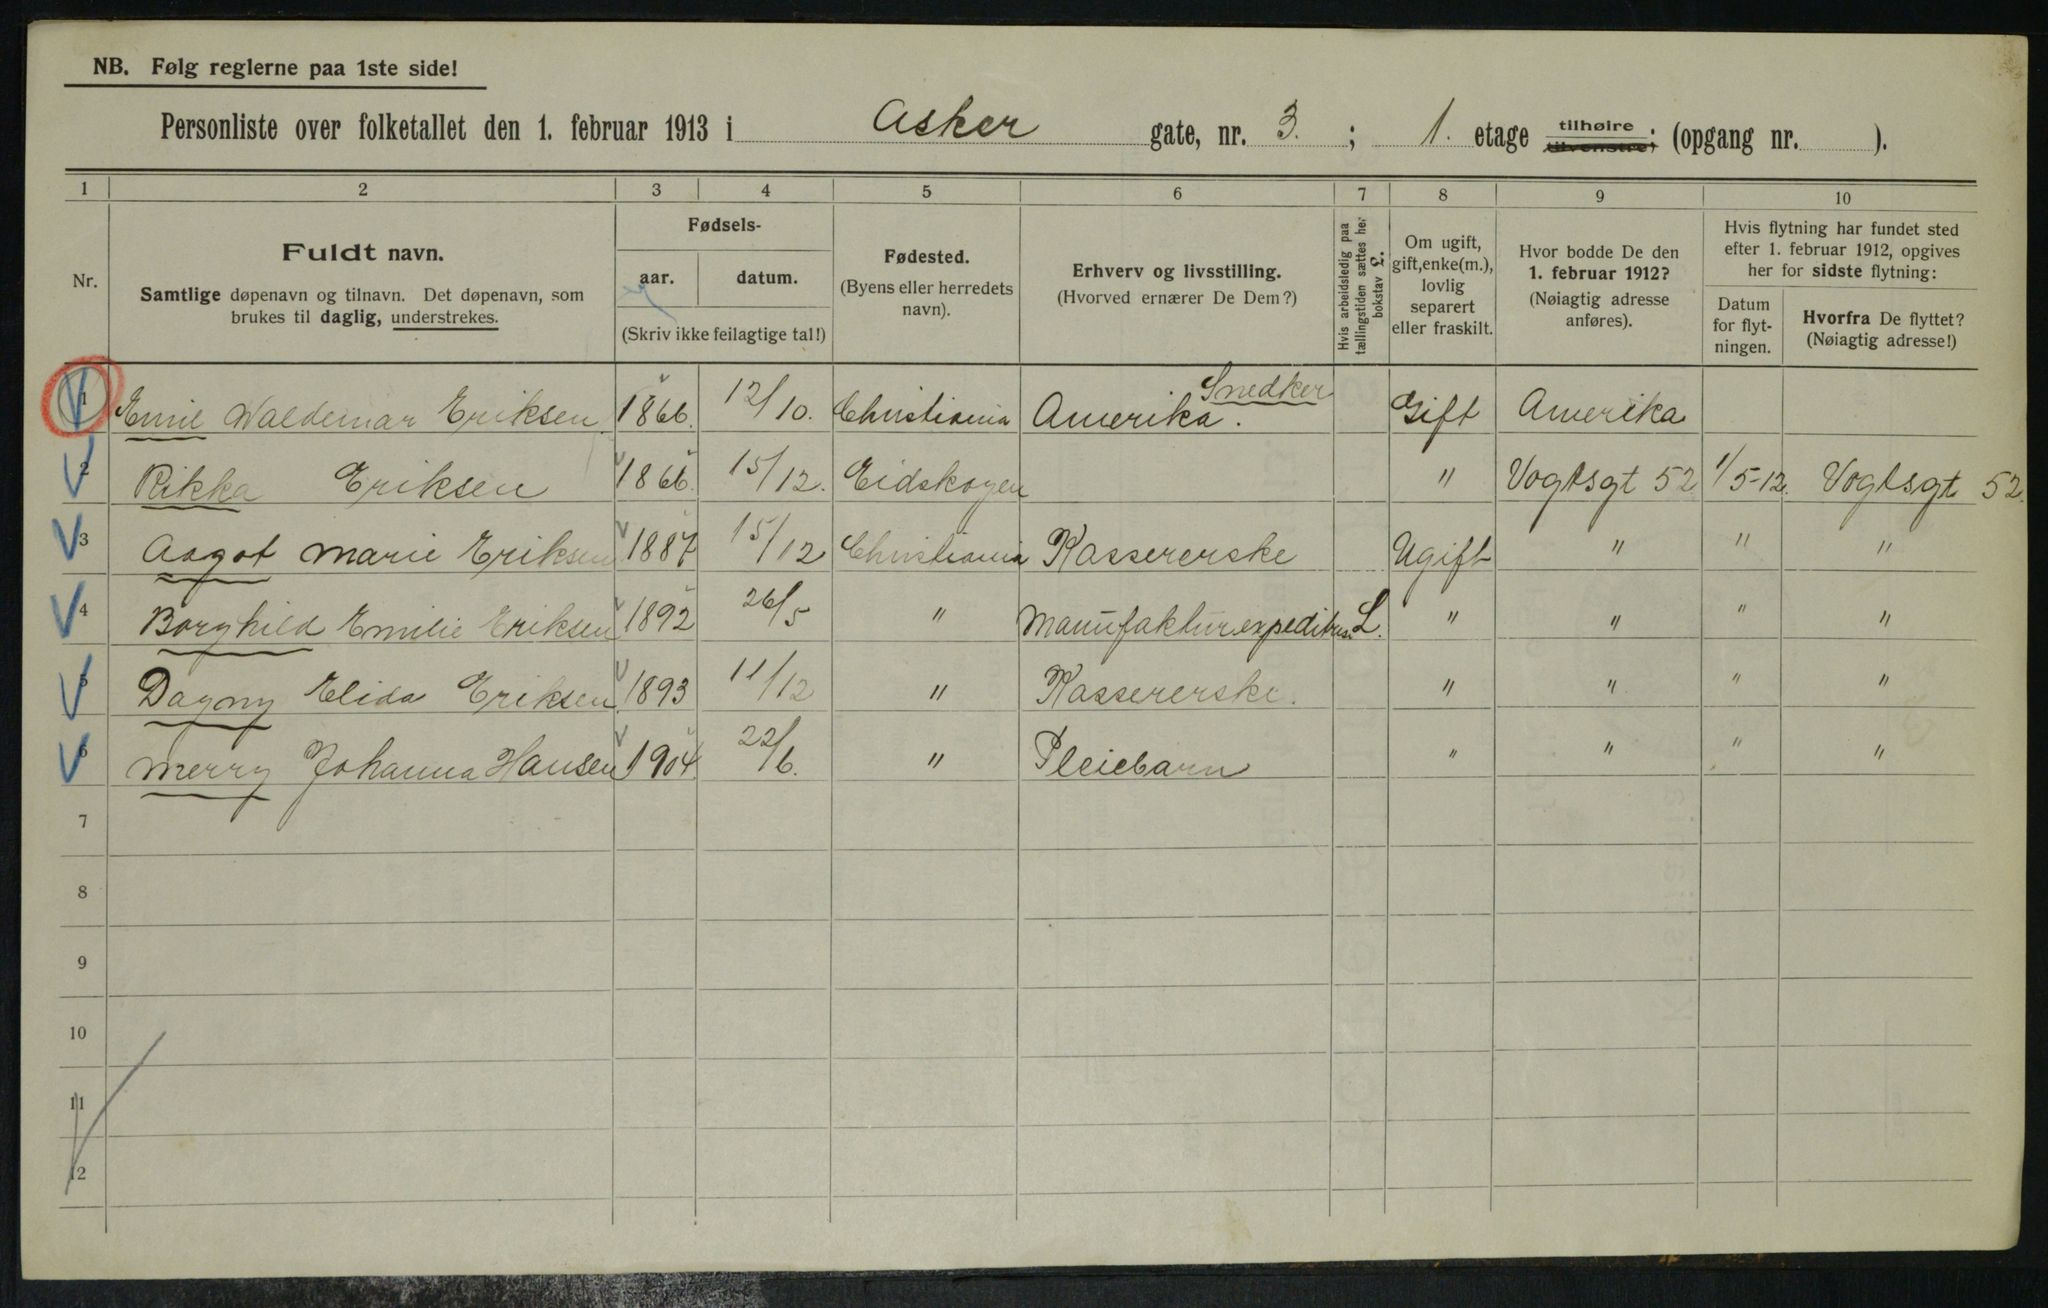 NB. Følg reglerne paa 1ste side!
Personliste over folketallet den 1. februar 1913 i Asker gate, nr. 3. ; 1. etage tilhøire tilvenstre; (opgang nr. ).
1 2 3 4 5 6 7 8 9 10
Nr.
Fuldt navn.
Samtlige døpenavn og tilnavn. Det døpenavn, som
brukes til daglig, understrekes.
Fødsels-
aar. datum.
(Skriv ikke feilagtige tal!)
Fødested.
(Byens eller herredets
navn).
Erhverv og livsstilling.
(Hvorved ernærer De Dem?)
Hvis arbeidsledig paa
tællingstiden sættes her
bokstav L.
Om ugift,
gift, enke(m.),
lovlig
separert
eller fraskilt.
Hvor bodde De den
1. februar 1912?
(Nøiagtig adresse
anføres).
Hvis flytning har fundet sted
efter 1. februar 1912, opgives
her for sidste flytning:
Datum
for flyt-
ningen.
Hvorfra De flyttet?
(Nøiagtig adresse!)
1 Emil Waldemar Eriksen. 1866. 12/10. Christiania Amerika. Snedker Gift Amerika
2 Rikka Eriksen 1866. 15/12. Eidskogen " Vogtsgt 52 1/5-12. Vogtsgt 52.
3 Aagot Marie Eriksen 1887 15/12 Christiania Kassererske Ugift " " "
4 Borghild Emilie Eriksen 1892 26/5 " Manufakturexpeditrise L. " " " "
5 Dagny Elida Eriksen 1893 11/12 " Kassererske. " " " "
6 Merry Johanna Hansen 1904. 22/6. " Pleiebarn " " " "
7
8
9
10
11
12